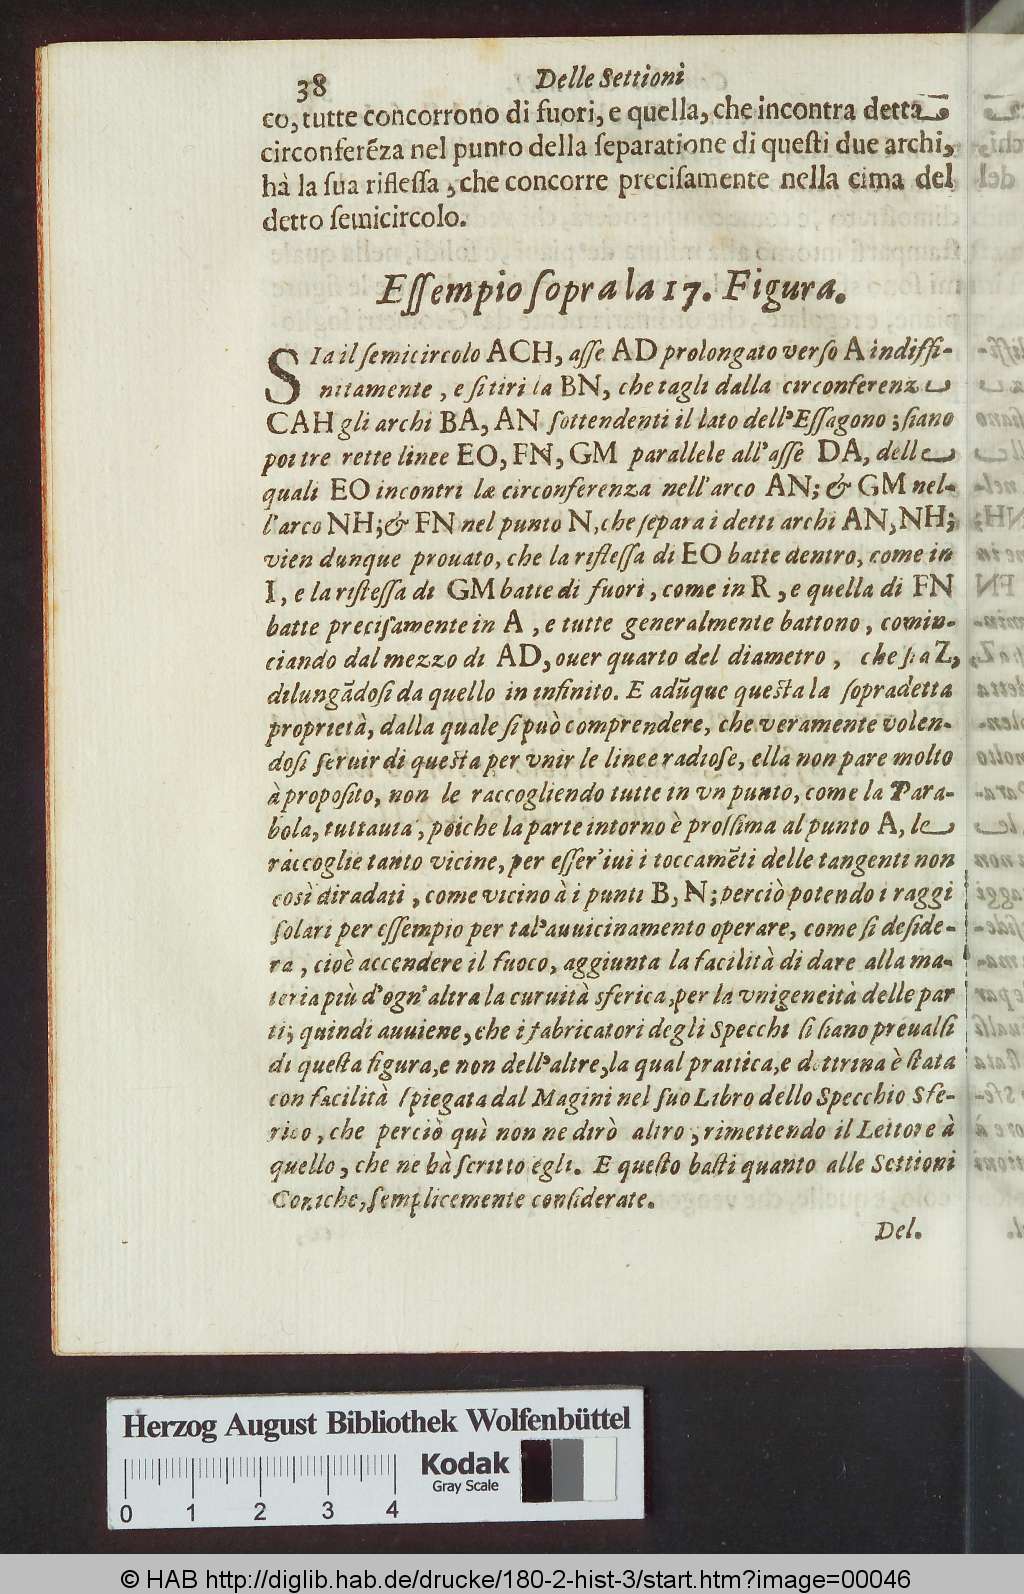 38 Delle Settioni
co, tutte concorrono di fuori, e quella, che incontra detta
circonferẽza nel punto della ſeparatione di queſti due archi,
hà la ſua rifleſſa, che concorre preciſamente nella cima del
detto ſemicircolo.
Eſſempio ſopra la 17. Figura.
SIa il ſemicircolo ACH, aſſe AD prolongato verſo A indiffi-
nitamente, e ſi tiri la BN, che tagli dalla circonferenza
CAH gli archi BA, AN ſottendenti il lato dell'Eſſagono; ſiano
poi tre rette linee EO, FN, GM parallele all'aſſe DA, delle
quali EO incontri la circonferenza nell'arco AN; & GM nel-
l'arco NH; & FN nel punto N, che ſepara i detti archi AN, NH;
vien dunque prouato, che la rifleſſa di EO batte dentro, come in
I, e la rifleſſa di GM batte di fuori, come in R, e quella di FN
batte preciſamente in A, e tutte generalmente battono, comin-
ciando dal mezzo di AD, ouer quarto del diametro, che ſia Z,
dilungãdoſi da quello in infinito. E adũque queſta la ſopradetta
proprietà, dalla quale ſi può comprendere, che veramente volen-
doſi ſeruir di queſta per vnir le linee radioſe, ella non pare molto
à propoſito, non le raccogliendo tutte in vn punto, come la Para-
bola, tuttauia, poiche la parte intorno è proſſima al punto A, le
raccoglie tanto vicine, per eſſer'iui i toccamẽti delle tangenti non
così diradati, come vicino à i punti B, N; perciò potendo i raggi
ſolari per eſſempio per tal'auuicinamento operare, come ſi deſide-
ra, cioè accendere il fuoco, aggiunta la facilità di dare alla ma-
teria più d'ogn'altra la curuità sferica, per la vnigeneità delle par
ti; quindi auuiene, che i fabricatori degli Specchi ſi ſiano preualſi
di queſta figura, e non dell'altre, la qual prattica, e dottrina è ſtata
con facilità ſpiegata dal Magini nel ſuo Libro dello Specchio Sfe-
rico, che perciò quì non ne dirò altro, rimettendo il Lettore à
quello, che ne hà ſcritto egli. E queſto baſti quanto alle Settioni
Coniche, ſemplicemente conſiderate.
Del.
Herzog August Bibliothek Wolfenbüttel
Kodak
Gray Scale
0 1 2 3 4
© HAB http://diglib.hab.de/drucke/180-2-hist-3/start.htm?image=00046